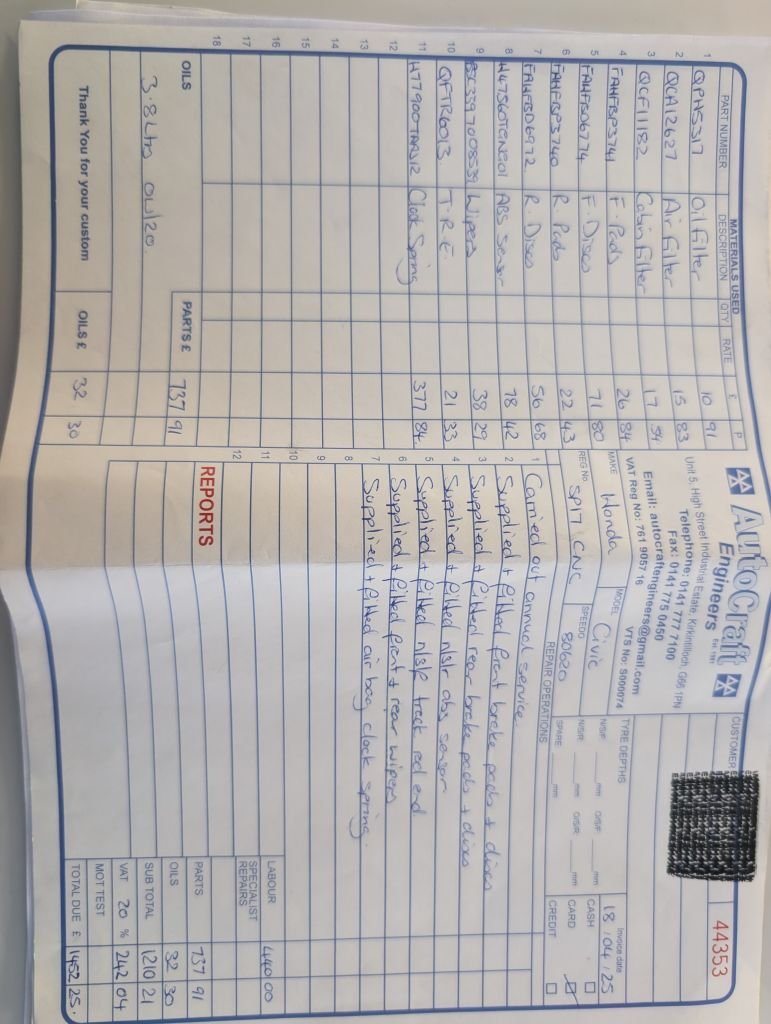 AutoCraft Est. 1981
Engineers
Unit 5, High Street Industrial Estate, Kirkintilloch, G66 1PN
Telephone: 0141 777 7100
Fax: 0141 775 0450
Email: autocraftengineers@gmail.com
VAT Reg No: 761 9057 16 VTS No: S000074
CUSTOMER
44353
MAKE Honda MODEL Civic
REG No. SP17 CNC SPEEDO 80620
TYRE DEPTHS
N/S/F mm O/S/F mm
N/S/R mm O/S/R mm
SPARE mm
Invoice date
18/04/25
CASH
CARD
CREDIT
MATERIALS USED
PART NUMBER DESCRIPTION QTY RATE £ P
1 QPH5317 Oil Filter 10 91
2 QCA12627 Air Filter 15 83
3 QCF11182 Cabin Filter 17 54
4 FAHFBP3741 F. Pads 26 84
5 FAHFBD6774 F. Discs 71 80
6 FAHFBP3740 R. Pads 22 43
7 FAHFBD6972 R. Discs 56 68
8 ABS Sensor 78 42
9 BSC3397008539 Wipers 38 29
10 QFTR6013 T.R.E. 21 33
11 Clock Spring 377 84
12
13
14
15
16
17
18
PARTS £ 737 91
OILS
3.8 Ltrs 0W/20.
OILS £ 32 30
Thank You for your custom
REPAIR OPERATIONS
1 Carried out annual service
2 Supplied + fitted front brake pads + discs
3 Supplied + fitted rear brake pads + discs
4 Supplied + fitted n/s/r abs sensor
5 Supplied + fitted n/s/f track rod end
6 Supplied + fitted front + rear wipers
7 Supplied + fitted air bag clock spring.
8
9
10
11
12
REPORTS
LABOUR 440 00
SPECIALIST REPAIRS
PARTS 737 91
OILS 32 30
SUB TOTAL 1210 21
VAT 20 % 242 04
MOT TEST
TOTAL DUE £ 1452 25.